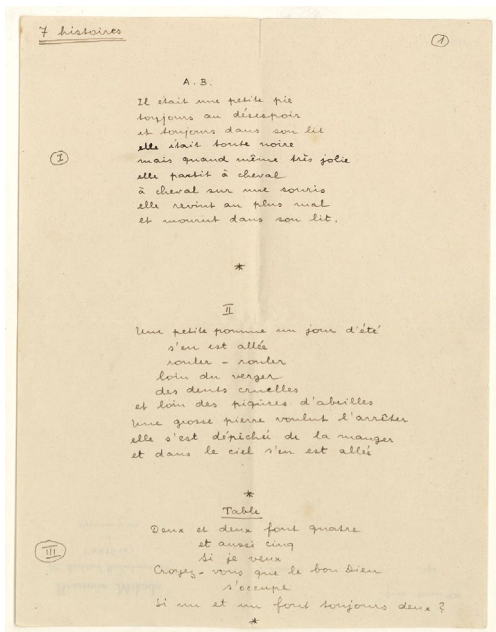 7 histoires
1
A. B.
I
Il était une petite pie
toujours au désespoir
et toujours dans son lit
elle était toute noire
mais quand même très jolie
elle partit à cheval
à cheval sur une souris
elle revint au plus mal
et mourut dans son lit.
*
II
Une petite pomme un jour d'été
s'en est allée
rouler - rouler
loin du verger
des dents cruelles
et loin des piqûres d'abeilles
Une grosse pierre voulut l'arrêter
elle s'est dépêchée de la manger
et dans le ciel s'en est allée
*
Table
III
Deux et deux font quatre
et aussi cinq
si je veux
Croyez-vous que le bon Dieu
s'occupe
si un et un font toujours deux ?
*